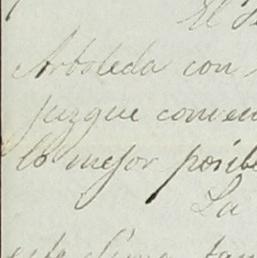 El
Arboleda con
juzgue conven
lo mejor posib
La